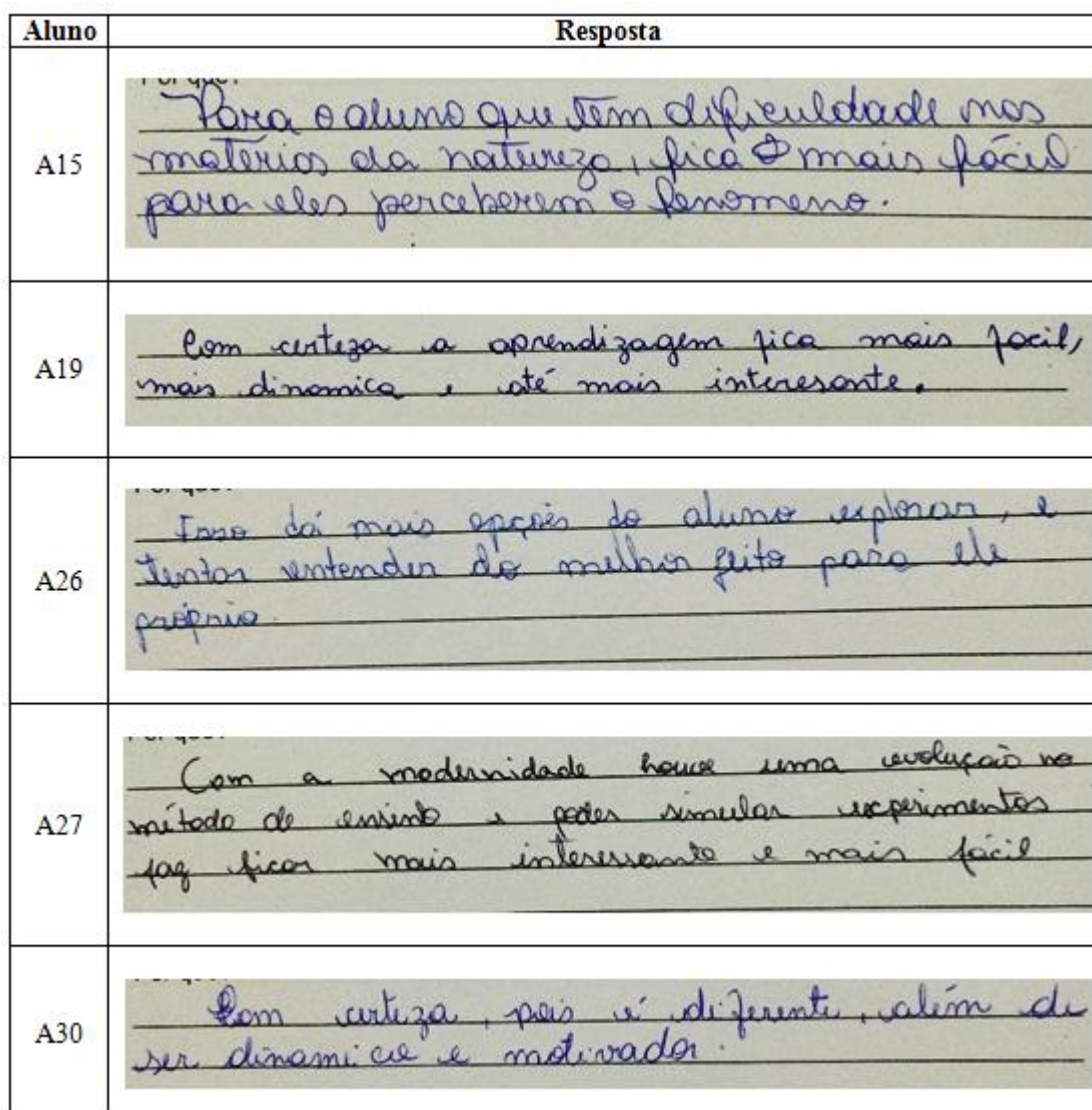 Aluno Resposta
A15
Para o aluno que tem dificuldade nas
matérias da natureza, fica mais fácil
para eles perceberem o fenomeno.
A19
Com certeza a aprendizagem fica mais facil,
mais dinamica e até mais interesante.
A26
Isso dá mais opções do aluno explorar, e
tentar entender do melhor jeito para ele
próprio.
A27
Com a modernidade houve uma evolução no
método de ensino e poder simular experimentos
faz ficar mais interessante e mais fácil
A30
Com certeza, pois é diferente, além de
ser dinamico e motivador.